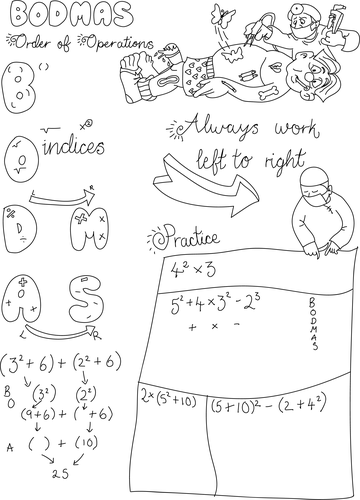 BODMAS
Order of Operations
B ( )
O √ x² indices
L R
D % ÷ M + × ×
Always work
left to right
A + + S - -
L R
Practice
4² × 3
5² + 4 × 3² - 2³
+ × -
B
O
D
M
A
S
2 × (5² + 10)
(5 + 10)² - (2 + 4²)
(3² + 6) + (2² + 6)
B
O (3²) (2²)
(9 + 6) + ( + 6)
A ( ) + (10)
25